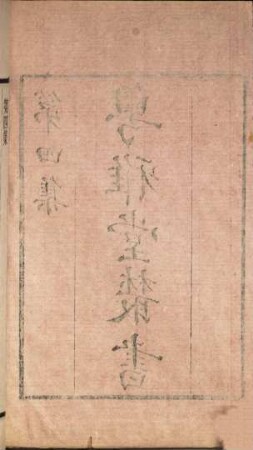 粤雅堂叢書
第四集